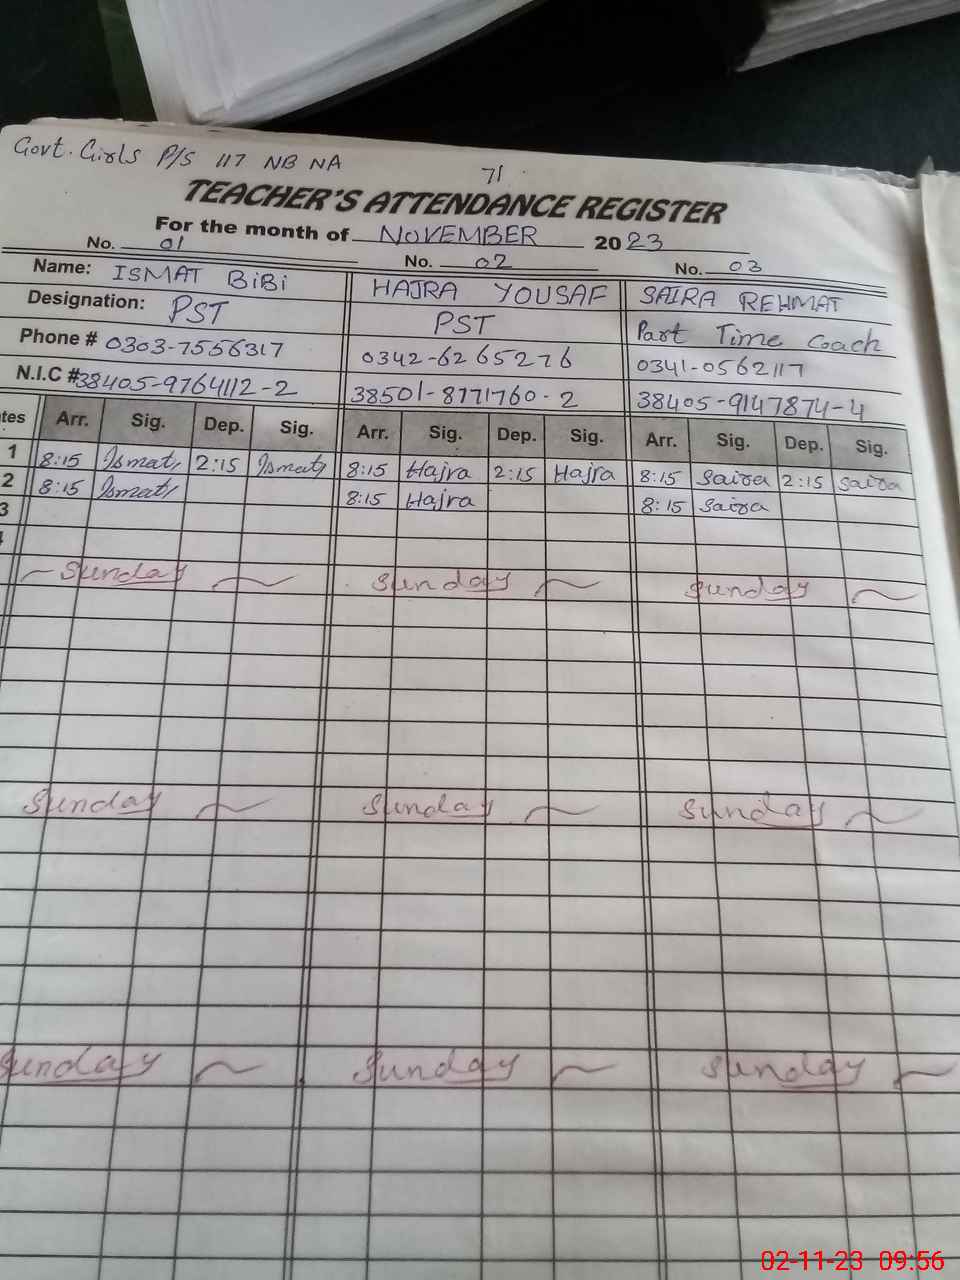 Govt. Girls P/S 117 NB NA
71
TEACHER'S ATTENDANCE REGISTER
For the month of NOVEMBER 2023
No. 01 No. 02 No. 03
Name: ISMAT BiBi HAJRA YOUSAF SAIRA REHMAT
Designation: PST PST Part Time Coach
Phone # 0303-7556317 0342-6265276 0341-0562117
N.I.C # 38405-9764112-2 38501-8771760-2 38405-9147874-4
tes Arr. Sig. Dep. Sig. Arr. Sig. Dep. Sig. Arr. Sig. Dep. Sig.
1 8:15 Ismat 2:15 Ismat 8:15 Hajra 2:15 Hajra 8:15 Saira 2:15 Saira
2 8:15 Ismat 8:15 Hajra 8:15 Saira
3
Sunday Sunday Sunday
Sunday Sunday Sunday
Sunday Sunday Sunday
02-11-23 09:56